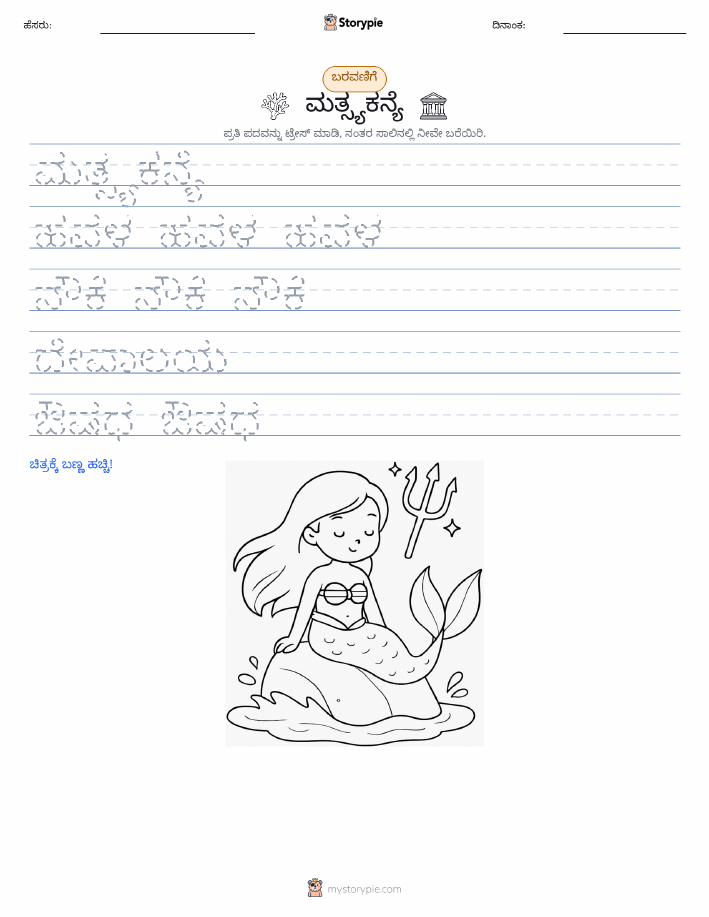 ಹೆಸರು: Storypie ದಿನಾಂಕ:
ಬರವಣಿಗೆ
ಮತ್ಸ್ಯಕನ್ಯೆ
ಪ್ರತಿ ಪದವನ್ನು ಟ್ರೇಸ್ ಮಾಡಿ, ನಂತರ ಸಾಲಿನಲ್ಲಿ ನೀವೇ ಬರೆಯಿರಿ.
ಮತ್ಸ್ಯಕನ್ಯೆ
ಹವಳ ಹವಳ ಹವಳ
ನೌಕೆ ನೌಕೆ ನೌಕೆ
ದೇವಾಲಯ
ಔಷಧ ಔಷಧ
ಚಿತ್ರಕ್ಕೆ ಬಣ್ಣ ಹಚ್ಚಿ!
mystorypie.com